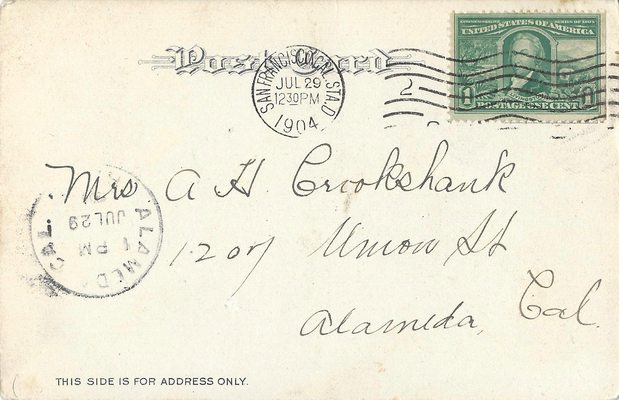 Postal Card
SAN FRANCISCO, CAL. STA. D
JUL 29
1230 PM
1904
2
UNITED STATES OF AMERICA
1 1
POSTAGE ONE CENT
Mrs A H Crookshank
1207 Union St
Alameda, Cal.
ALAMEDA CAL.
JUL 29
1 PM
THIS SIDE IS FOR ADDRESS ONLY.